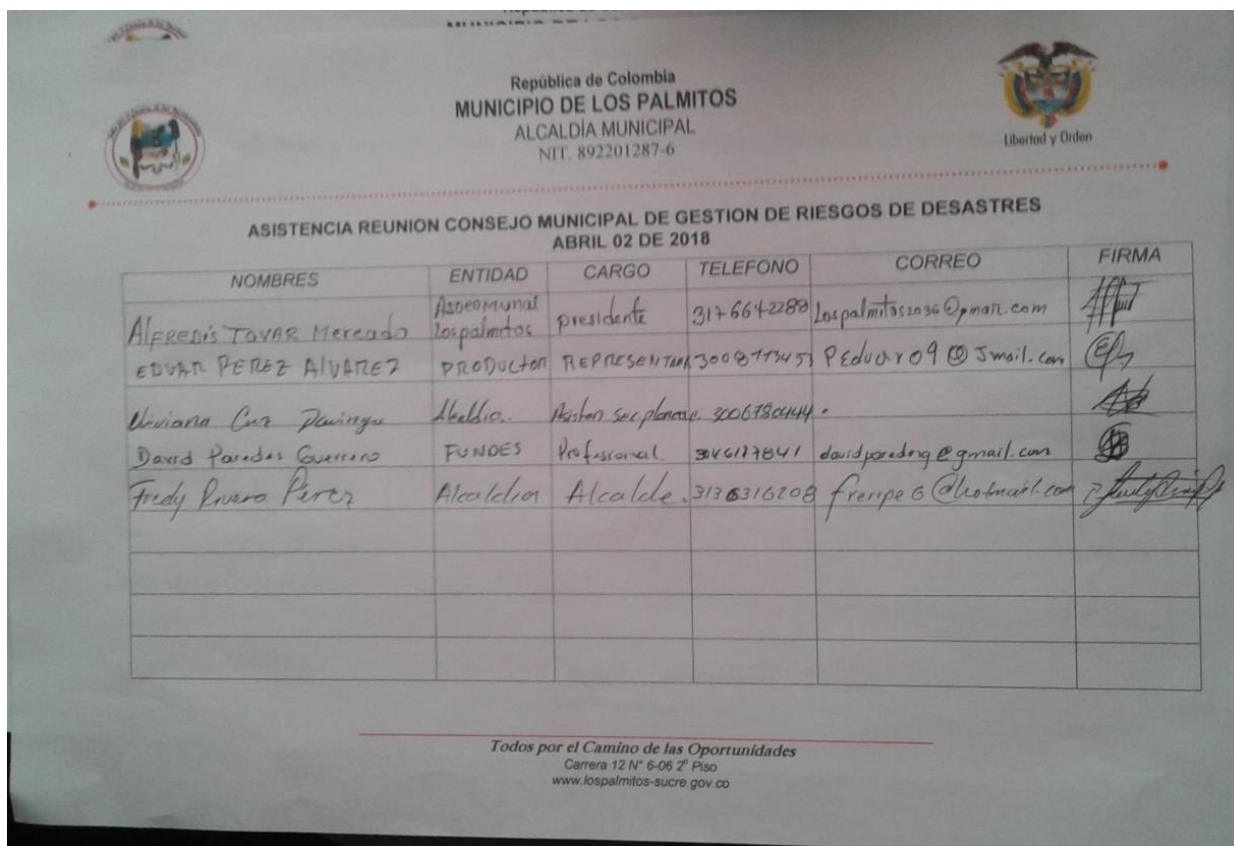 República de Colombia
MUNICIPIO DE LOS PALMITOS
ALCALDÍA MUNICIPAL
NIT. 892201287-6
Libertad y Orden
ASISTENCIA REUNION CONSEJO MUNICIPAL DE GESTION DE RIESGOS DE DESASTRES
ABRIL 02 DE 2018
NOMBRES ENTIDAD CARGO TELEFONO CORREO FIRMA
Alfredis Tovar Mercado Asocomunal Los palmitos presidente 3176642288 Lospalmitos2036@gmail.com
EDVAR PEREZ AlVAREZ PRODUCTOR REPRESENTANTE PEduaro9@Jmail.com
Viviana Cruz Alcaldia. Asisten sec planeac. 3006780444.
David Paredes Guerrero FUNDES Profesional 3046177841 davidparedesg@gmail.com
Fredy Rivero Perez Alcaldia Alcalde. 3136316208 freripe6@hotmail.com
Todos por el Camino de las Oportunidades
Carrera 12 N° 6-06 2° Piso
www.lospalmitos-sucre.gov.co